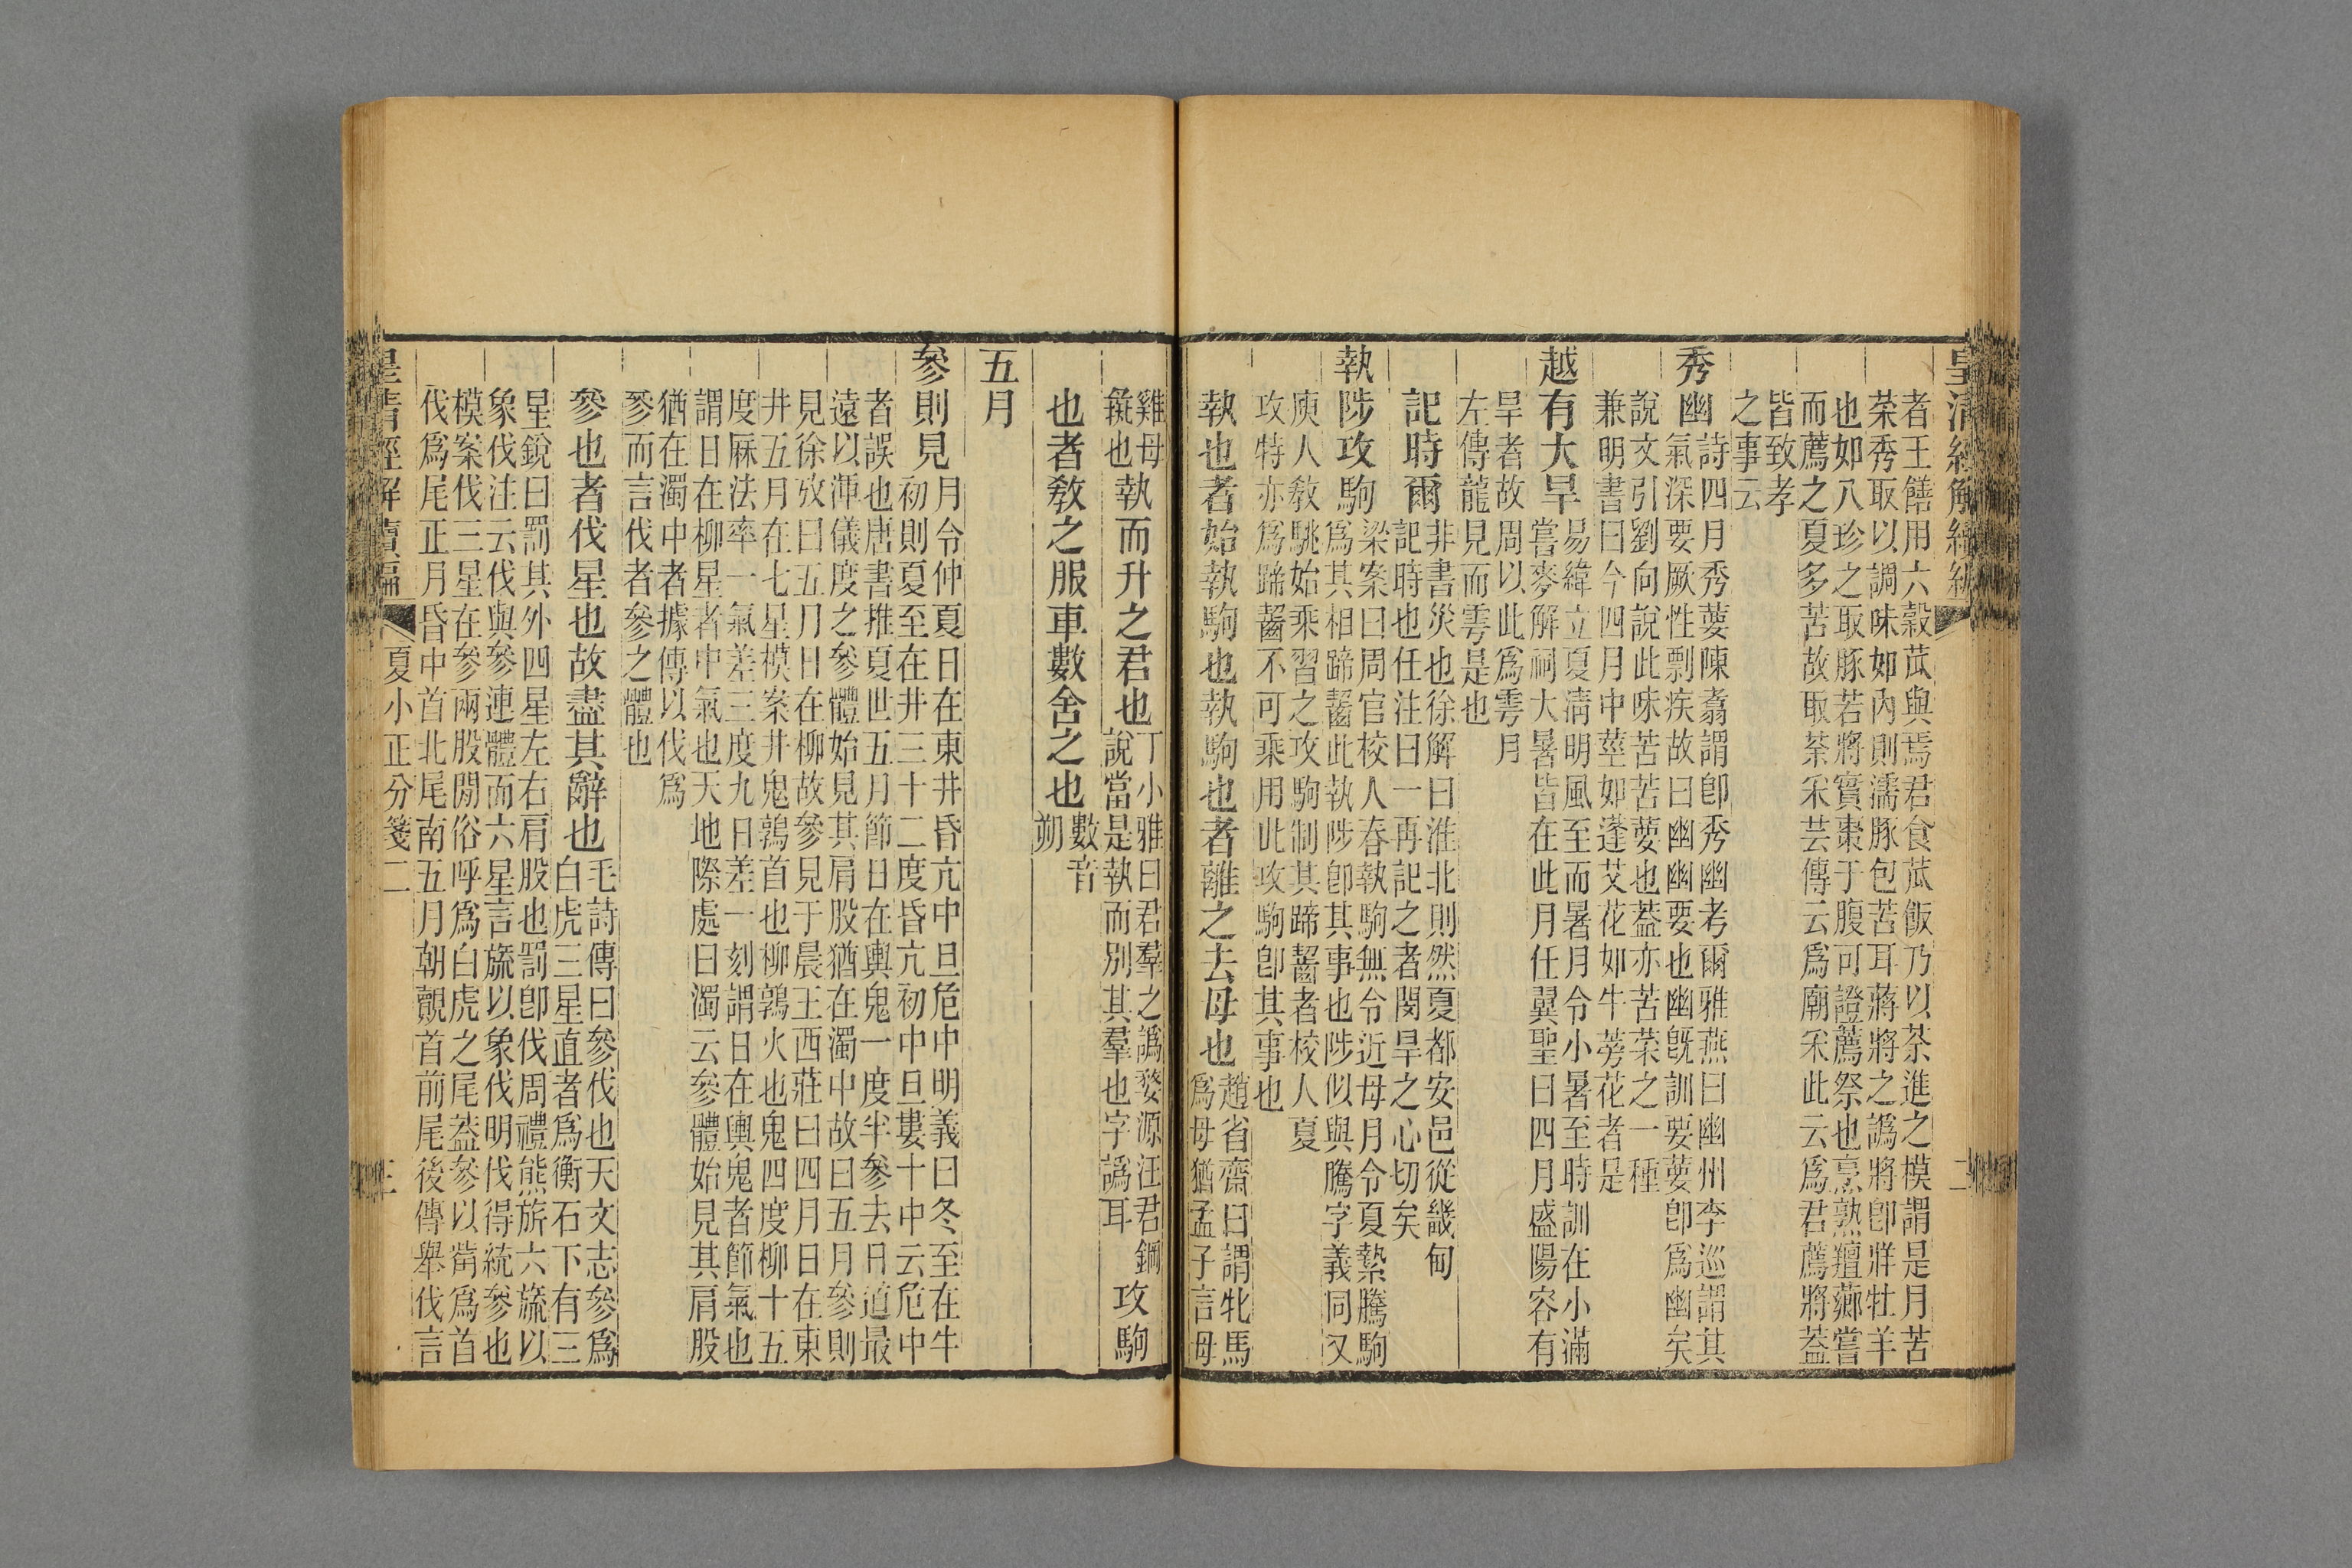 皇清經解續編
者王饍用六穀苽與焉君食苽飯乃以荼進之模謂是月苦
荼秀取以調味如內則濡豚包苦耳蔣將之譌將卽牂牡羊
也如八珍之取豚若將實棗于腹可證薦祭也烹熟羶薌嘗
而薦之夏多苦故取荼采芸傳云爲廟采此云爲君薦將蓋
皆致孝
之事云
秀幽
詩四月秀葽陳翥謂卽秀幽考爾雅燕曰幽州李巡謂其
氣深要厥性剽疾故曰幽幽要也幽旣訓要葽卽爲幽矣
說文引劉向說此味苦苦葽也蓋亦苦菜之一種
兼明書曰今四月中莖如蓬艾花如牛蒡花者是
越有大旱
易緯立夏淸明風至而暑月令小暑至時訓在小滿
嘗麥解祠大暑皆在此月任翼聖曰四月盛陽容有
旱者故周以此爲雩月
左傳龍見而雩是也
記時爾
非書災也徐解曰淮北則然夏都安邑從畿甸
記時也任注曰一再記之者閔旱之心切矣
執陟攻駒
梁案曰周官校人春執駒無令近母月令夏縶騰駒
爲其相蹄齧此執陟卽其事也陟似與騰字義同又
庾人敎駣始乘習之攻駒制其蹄齧者校人夏
攻特亦爲蹄齧不可乘用此攻駒卽其事也
執也者始執駒也執駒也者離之去母也
趙省齋曰謂牝馬
爲母猶孟子言母
二
雞母
彘也
執而升之君也
丁小雅曰君羣之譌婺源汪君鋼
說當是執而別其羣也字譌耳
攻駒
也者敎之服車數舍之也
數音
朔
五月
參則見
月令仲夏日在東井昏亢中旦危中明義曰冬至在牛
初則夏至在井三十二度昏亢初中旦婁十中云危中
者誤也唐書推夏世五月節日在輿鬼一度半參去日道最
遠以渾儀度之參體始見其肩股猶在濁中故曰五月參則
見徐攷曰五月日在柳故參見于晨王西莊曰四月日在東
井五月在七星模案井鬼鶉首也柳鶉火也鬼四度柳十五
度厤法率一氣差三度九日差一刻謂日在輿鬼者節氣也
謂日在柳星者中氣也天地際處曰濁云參體始見其肩股
猶在濁中者據傳以伐爲
參而言伐者參之體也
參也者伐星也故盡其辭也
毛詩傳曰參伐也天文志參爲
白虎三星直者爲衡石下有三
星銳曰罰其外四星左右肩股也罰卽伐周禮熊旂六斿以
象伐注云伐與參連體而六星言旒以象伐明伐得統參也
模案伐三星在參兩股閒俗呼爲白虎之尾蓋參以觜爲首
伐爲尾正月昏中首北尾南五月朝覿首前尾後傳舉伐言
皇淸經解續編
夏小正分箋二
三